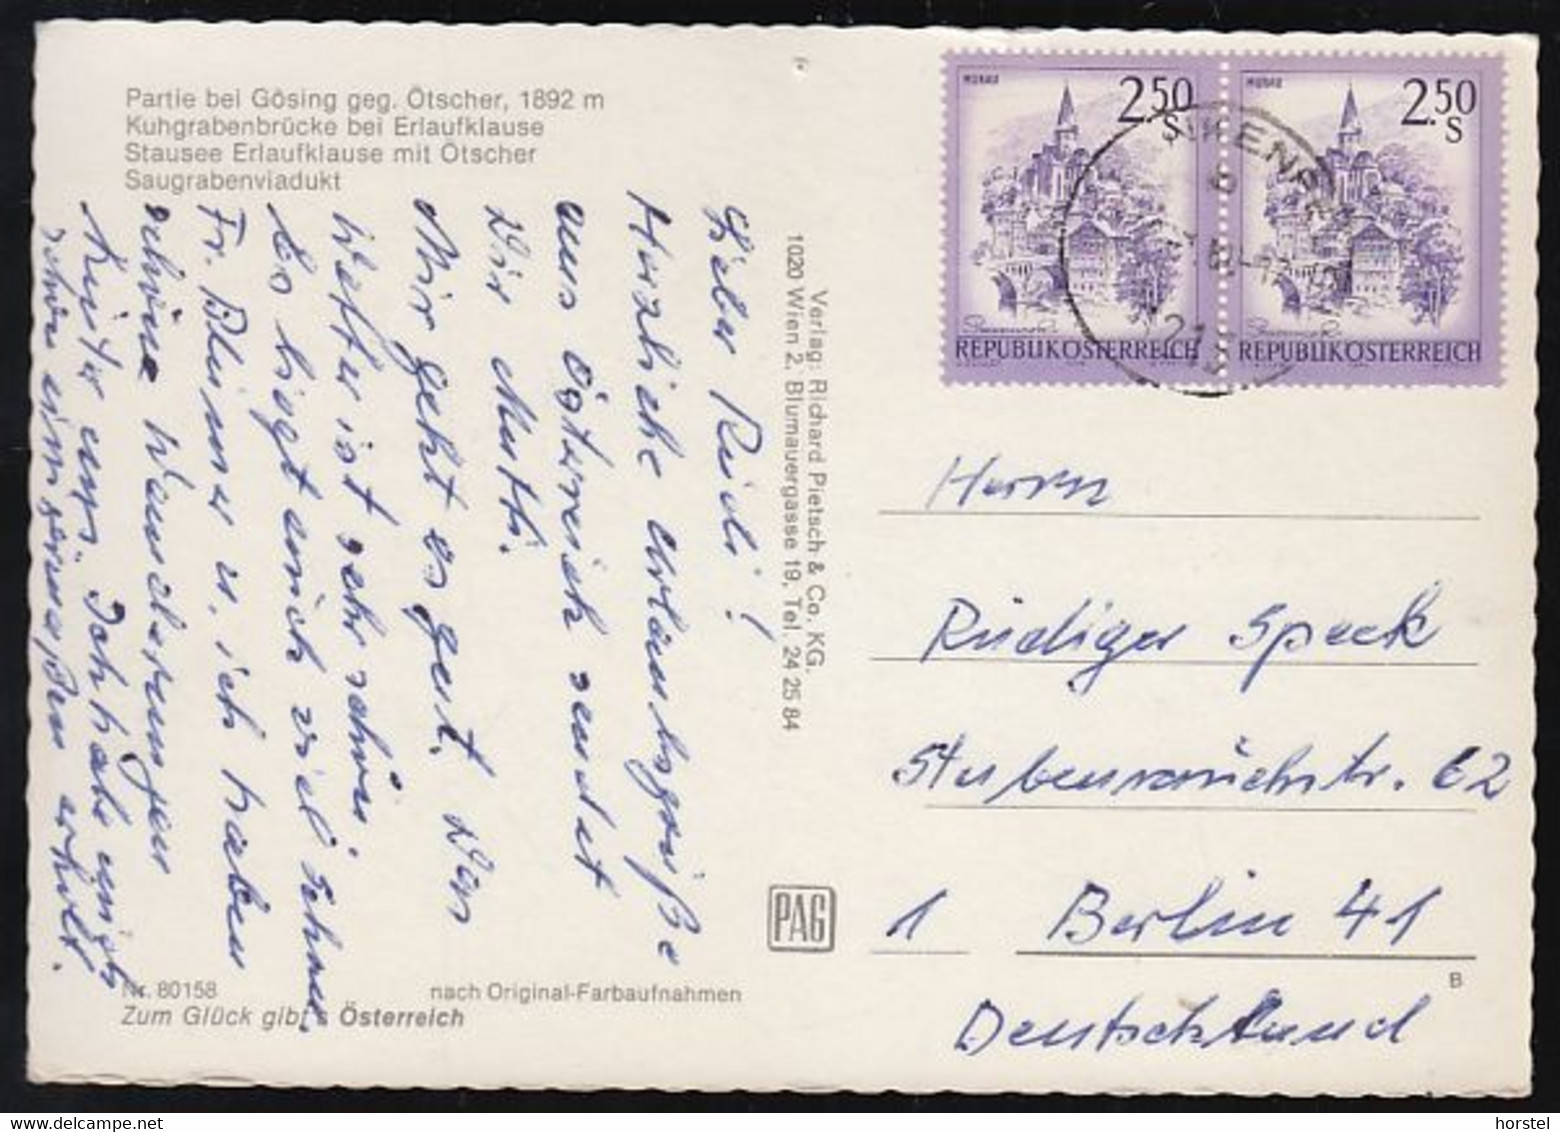 Partie bei Gösing geg. Ötscher, 1892 m
Kuhgrabenbrücke bei Erlaufklause
Stausee Erlaufklause mit Ötscher
Saugrabenviadukt
Lieber Rüdi!
Herzliche Urlaubsgrüße
aus Österreich sendet
Dir Mutti.
Mir geht es gut. Das
Wetter ist sehr schön.
Es liegt noch viel Schnee.
Fr. Blümer u. ich haben
schöne Wanderungen
hinter uns. Ich habe mich
schon einigermaßen erholt.
Nr. 80158
nach Original-Farbaufnahmen
Zum Glück gibt's Österreich
Verlag: Richard Pietsch & Co. KG.
1020 Wien 2, Blumauergasse 19, Tel. 24 25 84
PAG
MURAU
2.50
S
Steiermark
REPUBLIK ÖSTERREICH
MURAU
2.50
S
Steiermark
REPUBLIK ÖSTERREICH
Herrn
Rüdiger Speck
Stubenrauchstr. 62
1 Berlin 41
B
Deutschland
horstel